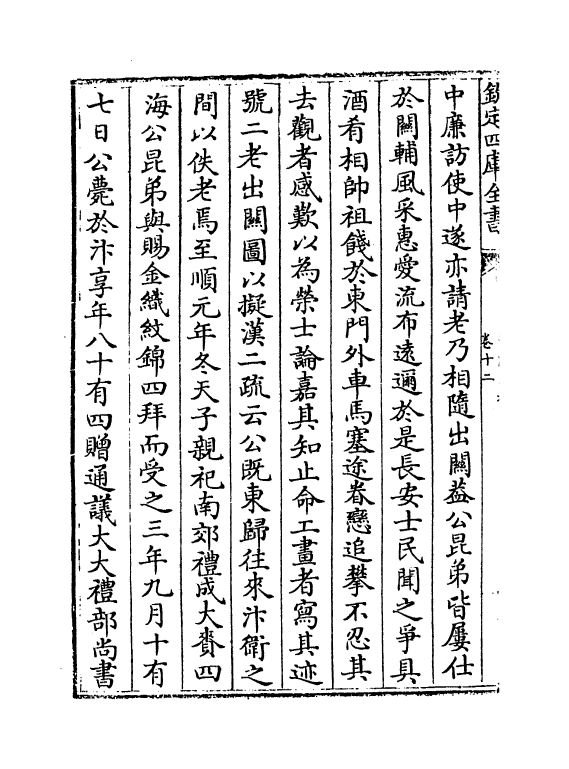 欽定四庫全書
卷十二
中廉訪使中遂亦請老乃相隨出關葢公昆弟皆屢仕
於關輔風采惠愛流布遠邇於是長安士民聞之爭具
酒肴相帥祖餞於東門外車馬塞途眷戀追攀不忍其
去觀者感歎以為榮士論嘉其知止命工畫者寫其迹
號二老出關圖以擬漢二疏云公既東歸往來汴衛之
間以佚老焉至順元年冬天子親祀南郊禮成大賚四
海公昆弟與賜金織紋錦四拜而受之三年九月十有
七日公薨於汴享年八十有四贈通議大大禮部尚書